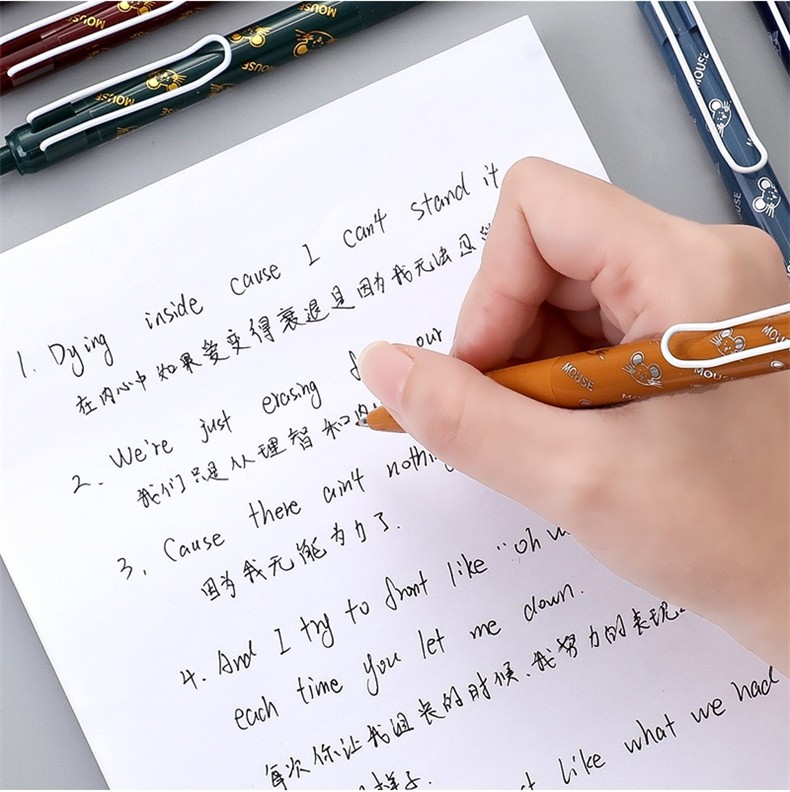 MOUSE
MOUSE
MOUSE
1. Dying inside cause I can4 stand it
在内心中如果爱变得衰退是因为我无法忍
2. We're just erasing our
我们只是从理智和内
3. Cause there ain4 nothin
因为我无能为力了.
4. And I try to front like "oh
each time you let me down.
每次你让我沮丧的时候、我努力的表现
like what we had
样子.
MOUSE
MOUSE